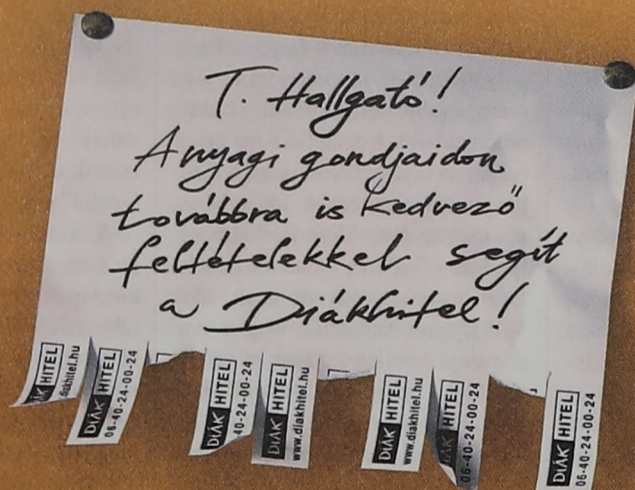 T. Hallgató!
Anyagi gondjaidon
továbbra is kedvező
feltételekkel segít
a Diákhitel!
HITEL
diakhitel.hu
DIÁK HITEL
06-40-24-00-24
DIÁK HITEL
40-24-00-24
DIÁK HITEL
www.diakhitel.hu
DIÁK HITEL
www.diakhitel.hu
DIÁK HITEL
06-40-24-00-24
DIÁK HITEL
06-40-24-00-24